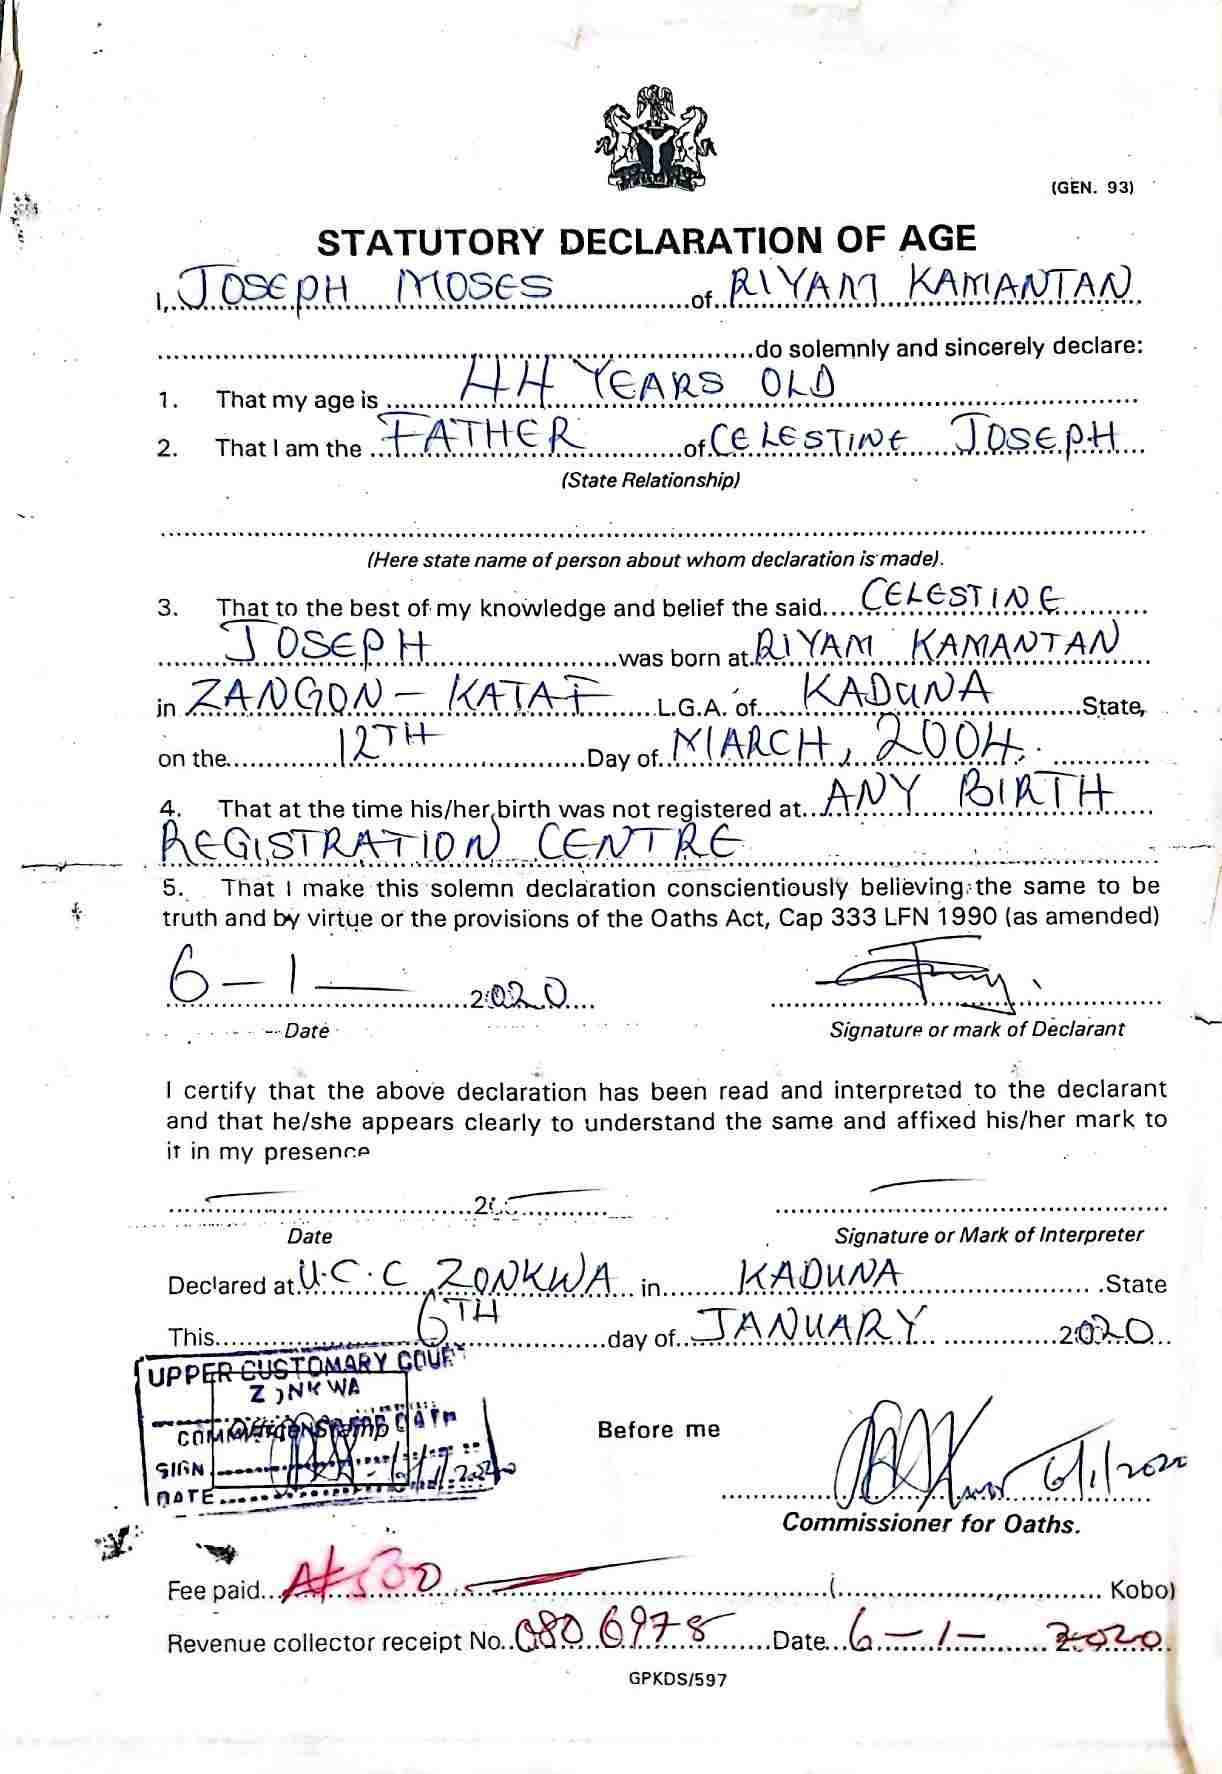 (GEN. 93)
STATUTORY DECLARATION OF AGE
I, JOSEPH MOSES of RIYAM KAMANTAN
do solemnly and sincerely declare:
1. That my age is 44 YEARS OLD
2. That I am the FATHER of CELESTINE JOSEPH
(State Relationship)
(Here state name of person about whom declaration is made).
3. That to the best of my knowledge and belief the said CELESTINE
JOSEPH was born at RIYAM KAMANTAN
in ZANGON - KATAF L.G.A. of KADUNA State,
on the 12TH Day of MARCH, 2004.
4. That at the time his/her birth was not registered at ANY BIRTH
REGISTRATION CENTRE
5. That I make this solemn declaration conscientiously believing the same to be
truth and by virtue or the provisions of the Oaths Act, Cap 333 LFN 1990 (as amended)
6 - 1 - 2020
Date Signature or mark of Declarant
I certify that the above declaration has been read and interpreted to the declarant
and that he/she appears clearly to understand the same and affixed his/her mark to
it in my presence
Date Signature or Mark of Interpreter
Declared at U.C.C ZONKWA in KADUNA State
This 6TH day of JANUARY 2020
UPPER CUSTOMARY COURT
ZONKWA
SIGN
DATE
Before me
6/1/2020
Commissioner for Oaths.
Fee paid ₦500 ( Kobo)
Revenue collector receipt No. 0806978 Date 6 - 1 - 2020
GPKDS/597